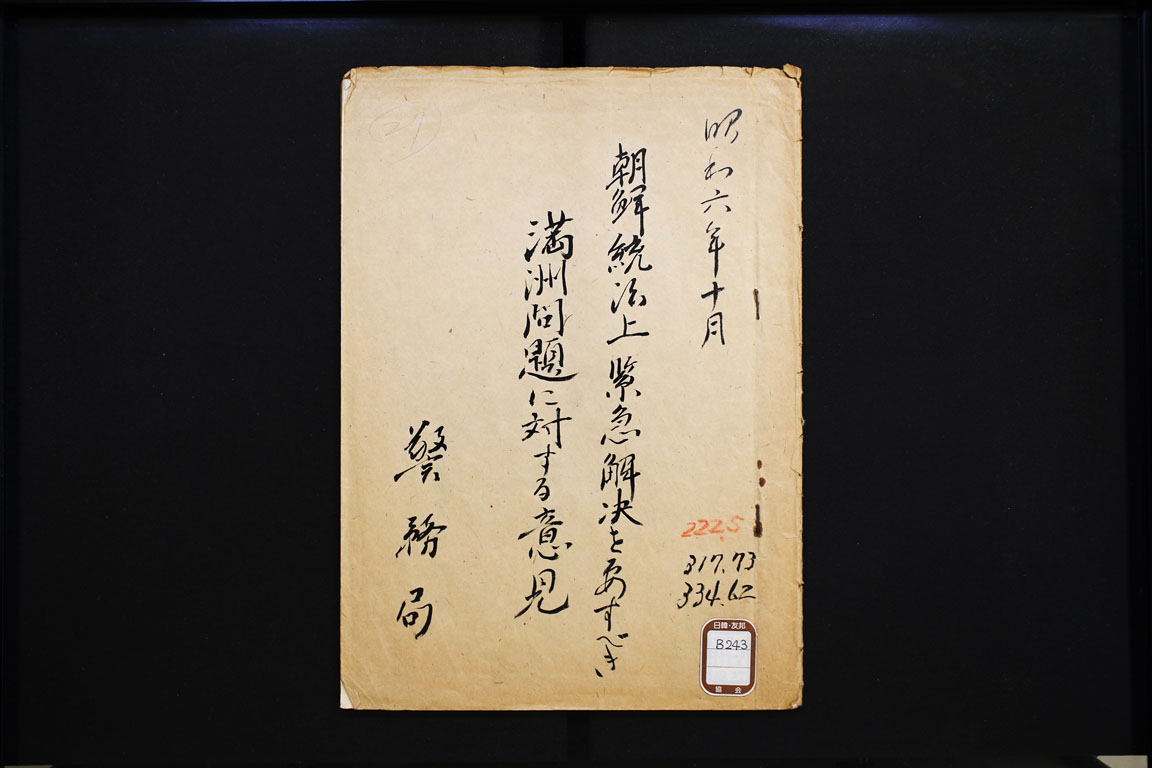 昭和六年十月
朝鮮統治上緊急解決を要すべき
満洲問題に対する意見
警務局
222.5
317.73
334.62
日韓・友邦
B243
協会